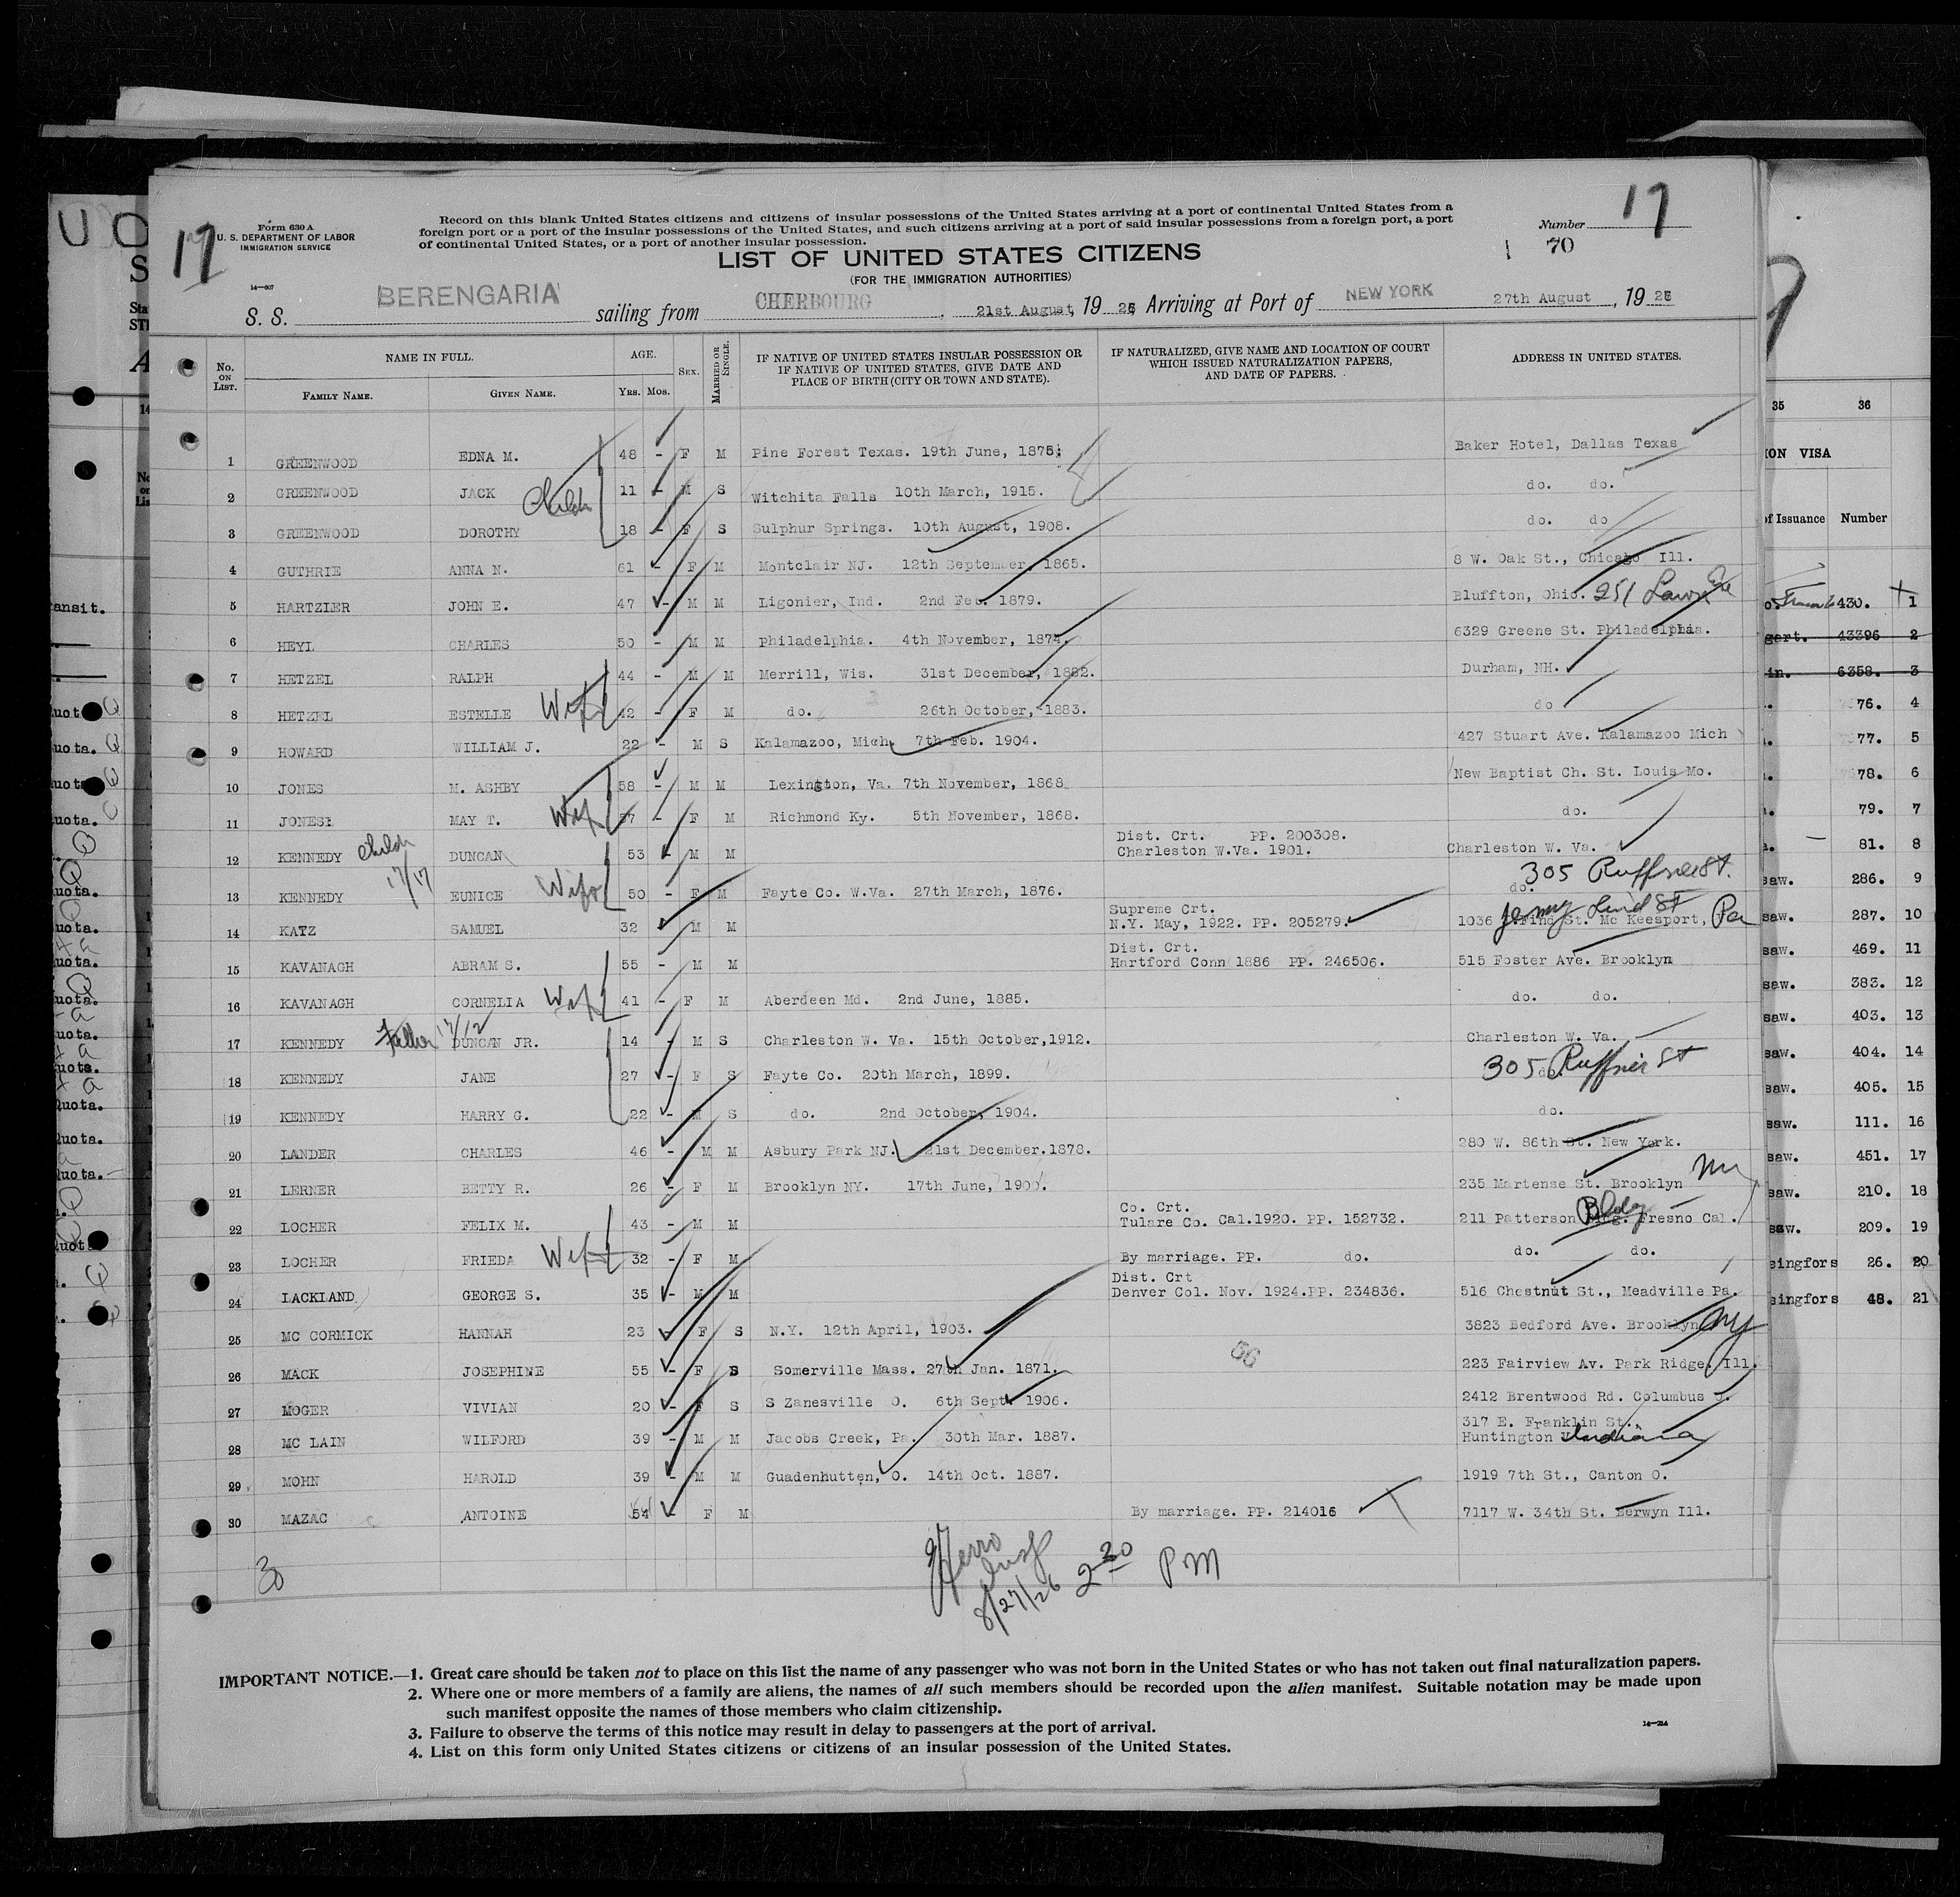 17
17
Form 630 A
U. S. DEPARTMENT OF LABOR
IMMIGRATION SERVICE
14—607
Record on this blank United States citizens and citizens of insular possessions of the United States arriving at a port of continental United States from a
foreign port or a port of the insular possessions of the United States, and such citizens arriving at a port of said insular possessions from a foreign port, a port
of continental United States, or a port of another insular possession.
Number
70
LIST OF UNITED STATES CITIZENS
(FOR THE IMMIGRATION AUTHORITIES)
S. S. BERENGARIA sailing from CHERBOURG, 21st August, 1926 Arriving at Port of NEW YORK 27th August, 1926
No. ON LIST. NAME IN FULL. FAMILY NAME. GIVEN NAME. AGE. Yrs. Mos. SEX. MARRIED OR SINGLE. IF NATIVE OF UNITED STATES INSULAR POSSESSION OR IF NATIVE OF UNITED STATES, GIVE DATE AND PLACE OF BIRTH (CITY OR TOWN AND STATE). IF NATURALIZED, GIVE NAME AND LOCATION OF COURT WHICH ISSUED NATURALIZATION PAPERS, AND DATE OF PAPERS. ADDRESS IN UNITED STATES.
1 GREENWOOD EDNA M. 48 - F M Pine Forest Texas. 19th June, 1875. Baker Hotel, Dallas Texas
2 GREENWOOD JACK Childn 11 - M S Witchita Falls 10th March, 1915. do. do.
3 GREENWOOD DOROTHY 18 - F S Sulphur Springs. 10th August, 1908. do. do
4 GUTHRIE ANNA N. 61 - F M Montclair NJ. 12th September, 1865. 8 W. Oak St., Chicago Ill.
5 HARTZIER JOHN E. 47 - M M Ligonier, Ind. 2nd Feb. 1879. Bluffton, Ohio. 251
6 HEYL CHARLES 50 - M M Philadelphia. 4th November, 1874. 6329 Greene St. Philadelphia.
7 HETZEL RALPH 44 - M M Merrill, Wis. 31st December, 1882. Durham, NH.
8 HETZEL ESTELLE Wife 42 - F M do. 26th October, 1883. do
9 HOWARD WILLIAM J. 22 - M S Kalamazoo, Mich. 7th Feb. 1904. 427 Stuart Ave. Kalamazoo Mich
10 JONES M. ASHBY 58 - M M Lexington, Va. 7th November, 1868. New Baptist Ch. St. Louis Mo.
11 JONES MAY T. Wife 57 - F M Richmond Ky. 5th November, 1868. do.
12 KENNEDY Childn 17/17 DUNCAN 53 - M M Dist. Crt. PP. 200308. Charleston W.Va. 1901. Charleston W. Va.
305 Ruffner St.
13 KENNEDY EUNICE Wife 50 - F M Fayte Co. W.Va. 27th March, 1876. do.
14 KATZ SAMUEL 32 - M M Supreme Crt. N.Y. May, 1922. PP. 205279. 1036 Jenny Lind St Find St. Mc Keesport, Pa
15 KAVANAGH ABRAM S. 55 - M M Dist. Crt. Hartford Conn 1886 PP. 246506. 515 Foster Ave. Brooklyn
16 KAVANAGH CORNELIA Wife 41 - F M Aberdeen Md. 2nd June, 1885. do. do.
17 KENNEDY Father 17/12 DUNCAN JR. 14 - M S Charleston W. Va. 15th October, 1912. Charleston W. Va.
305 Ruffner St
18 KENNEDY JANE 27 - F S Fayte Co. 20th March, 1899. do.
19 KENNEDY HARRY G. 22 - M S do. 2nd October, 1904. do.
20 LANDER CHARLES 46 - M M Asbury Park NJ. 21st December. 1878. 280 W. 86th St. New York.
21 LERNER BETTY R. 26 - F M Brooklyn NY. 17th June, 1900. 235 Martense St. Brooklyn NY
22 LOCHER FELIX M. 43 - M M Co. Crt. Tulare Co. Cal. 1920. PP. 152732. 211 Patterson Bldg Fresno Cal.
23 LOCHER FRIEDA Wife 32 - F M By marriage. PP. do. do. do.
24 LACKLAND GEORGE S. 35 - M M Dist. Crt Denver Col. Nov. 1924. PP. 234836. 516 Chestnut St., Meadville Pa.
25 MC CORMICK HANNAH 23 - F S N.Y. 12th April, 1903. 3823 Bedford Ave. Brooklyn NY
26 MACK JOSEPHINE 55 - F S Somerville Mass. 27th Jan. 1871. 56 223 Fairview Av. Park Ridge, Ill.
27 MOGER VIVIAN 20 - F S S Zanesville O. 6th Sept. 1906. 2412 Brentwood Rd. Columbus O.
28 MC LAIN WILFORD 39 - M M Jacobs Creek, Pa. 30th Mar. 1887. 317 E. Franklin St., Huntington Indiana
29 MOHN HAROLD 39 - M M Guadenhutten, O. 14th Oct. 1887. 1919 7th St., Canton O.
30 MAZAC ANTOINE 54 - F M By marriage. PP. 214016 7117 W. 34th St. Berwyn Ill.
30
Insp
8/27/26 2 20 PM
IMPORTANT NOTICE.—1. Great care should be taken not to place on this list the name of any passenger who was not born in the United States or who has not taken out final naturalization papers.
2. Where one or more members of a family are aliens, the names of all such members should be recorded upon the alien manifest. Suitable notation may be made upon
such manifest opposite the names of those members who claim citizenship.
3. Failure to observe the terms of this notice may result in delay to passengers at the port of arrival.
4. List on this form only United States citizens or citizens of an insular possession of the United States.
14—214
35 36
ION VISA
of Issuance Number
430. 1
gart. 43396 2
in. 6358. 3
76. 4
77. 5
78. 6
79. 7
81. 8
saw. 286. 9
saw. 287. 10
saw. 469. 11
saw. 383. 12
saw. 403. 13
saw. 404. 14
saw. 405. 15
saw. 111. 16
saw. 451. 17
saw. 210. 18
saw. 209. 19
singfors 26. 20
singfors 48. 21